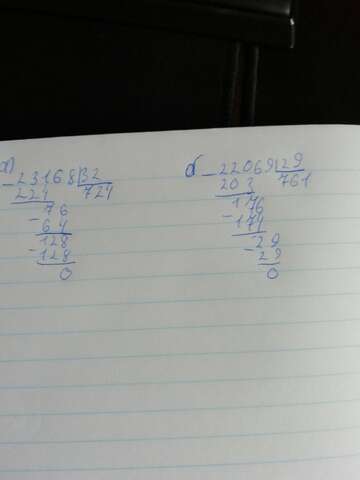 а)
23168|32
224 724
- 76
64
128
- 128
0
б
- 22069|29
203 761
176
- 174
29
- 29
0